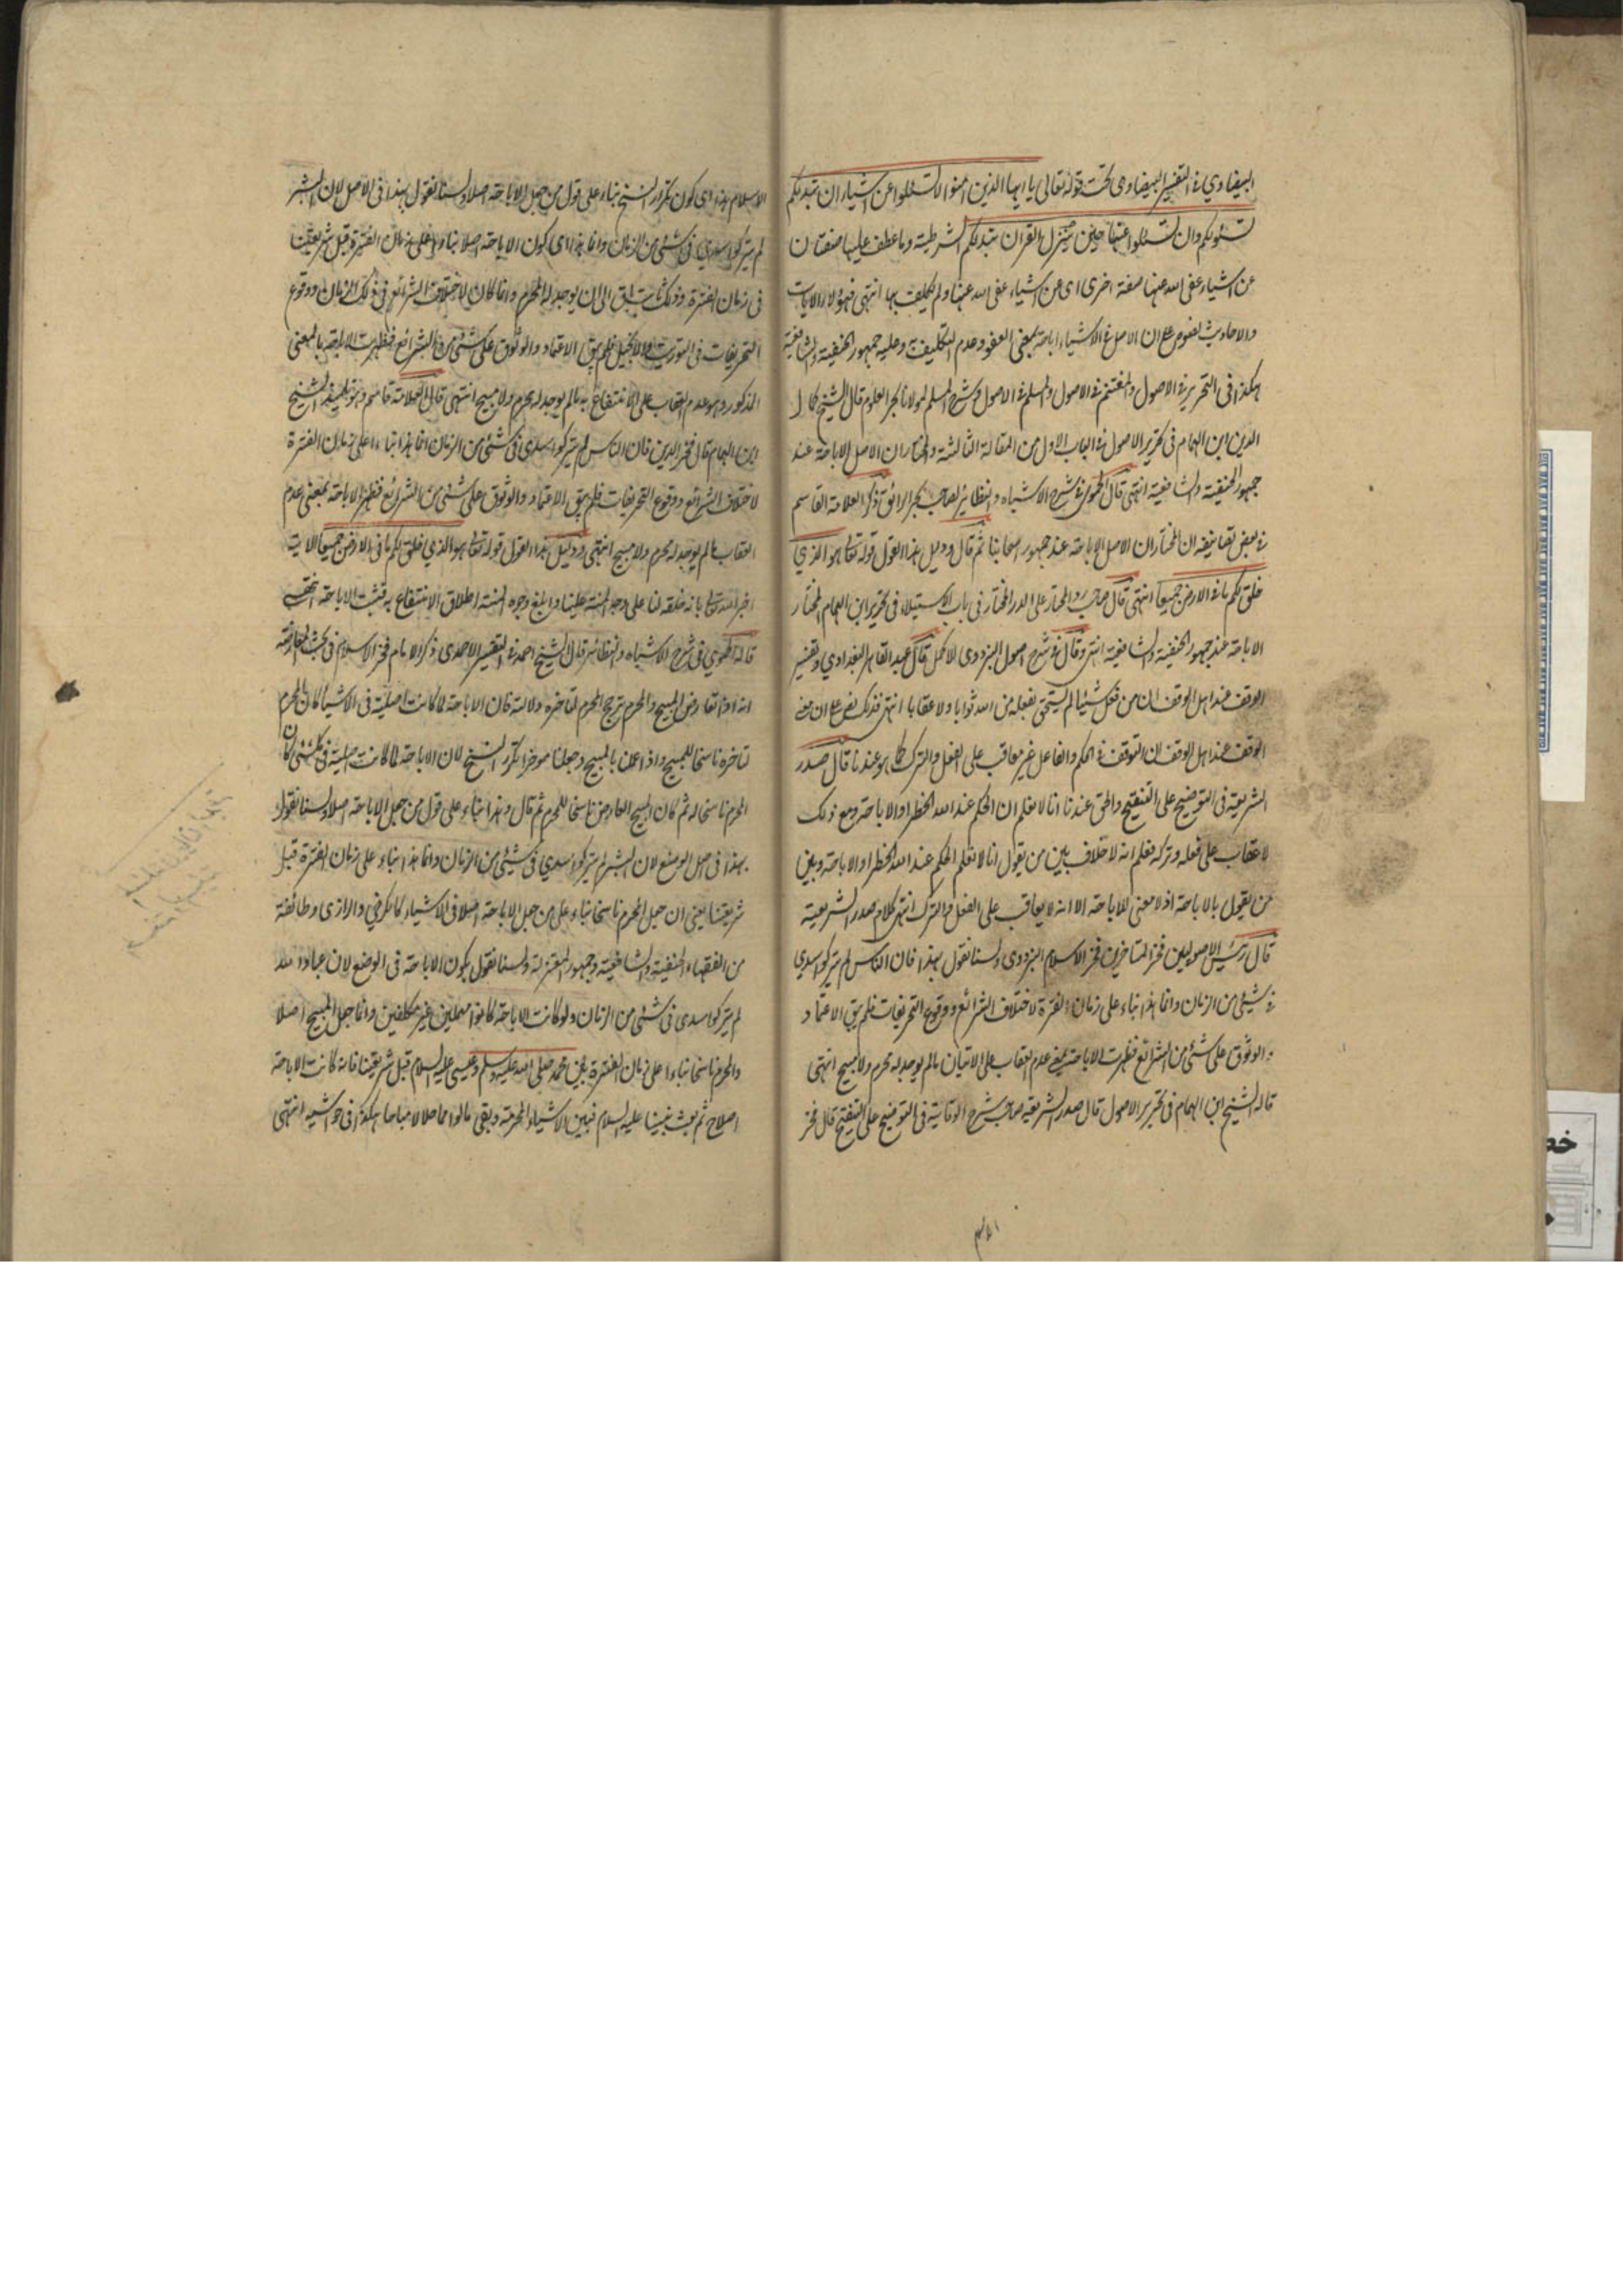 البيضاوي في التفسير البيضاوى تحت قوله تعالى يا ايها الذين امنوا لا تسئلوا عن اشياء ان تبدلكم
تسئوكم وان تسئلوا عنها حين ينزل القران تبدلكم الشرطية وما عطف عليها صفتان
عن اشياء عفى الله عنها صفة اخرى اى عن اشياء عفى الله عنها ولم يكلف بها انتهى فهؤلاء الايات
والاحاديث نصوص على ان الاصل في الاشياء اباحة بمعنى العفو وعدم التكليف وعليه جمهور الحنفية والشافعية
هكذا فى التحرير في الاصول والمغتنم في الاصول والمسلم في الاصول وشرح المسلم لمولانا بحر العلوم قال الشيخ كمال
الدين ابن الهمام فى تحرير الاصول في الباب الاول من المقالة الثالثة والمختار ان الاصل الاباحة عند
جمهور الحنفية والشافعية انتهى قال الحموى في شرح الاشباه والنظائر لصاحب بحر الرائق ذكر العلامة القاسم
في بعض تصانيفه ان المختار ان الاصل الاباحة عند جمهور اصحابنا ثم قال ودليل هذا القول قوله تعالى هو الذي
خلق لكم ما في الارض جميعا انتهى قال صاحب رد المحتار على الدر المختار فى باب الاستيلاء فى تحرير ابن الهمام المختار
الاباحة عند جمهور الحنفية والشافعية انتهى وقال في شرح اصول البزدوى الاكمل قال عبد القاهر البغدادي وتفسير
الوقف عند اهل الوقف ان من فعل شيئا لم يستحق بفعله من الله ثوابا ولا عقابا انتهى فذلك نص على ان معنى
الوقف عند اهل الوقف ان التوقف في الحكم والفاعل غير معاقب على الفعل والترك كما هو عندنا قال صدر
الشريعة فى التوضيح على التنقيح والحق عندنا انا لا نعلم ان الحكم عند الله الحظر او الاباحة ومع ذلك
لا عقاب على فعله وتركه فعلم انه لا خلاف بين من يقول انا لا نعلم الحكم عند الله الحظر او الاباحة وبين
من يقول بالاباحة اذ لا معنى للاباحة الا انه لا يعاقب على الفعل والترك انتهى كلام صدر الشريعة
قال رئيس الاصوليين فخر المتاخرين فخر الاسلام البزدوى ولسنا نقول بهذا فان الناس لم يتركوا سدي
في شيئ من الزمان وانما هذا بناء على زمان الفترة لاختلاف الشرائع ووقوع التحريفات فلم يبق الاعتماد
والوثوق على شئ من الشرائع فظهرت الاباحة بمعنى عدم العقاب على الاتيان بما لم يوجد له محرم ولا مبيح انتهى
قاله الشيخ ابن الهمام فى تحرير الاصول قال صدر الشريعة صاحب شرح الوقاية فى التوضيح على التنقيح قال فخر
الاسلام هذا اى كون تكرار النسخ بناء على قول من جعل الاباحة اصلا ولسنا نقول بهذا فى الاصل لان البشر
لم يتركوا سدي فى شئ من الزمان وانما هذا اى كون الاباحة اصلا بناء على زمان الفترة قبل شريعتنا
فى زمان الفترة وذلك ثابت الى ان يوجد له المحرم وانما كان لاختلاف الشرائع فى ذلك الزمان ووقوع
التحريفات فى التورية والانجيل فلم يبق الاعتماد والوثوق على شئ من الشرائع فظهرت الاباحة بالمعنى
المذكور وهو عدم العقاب على الانتفاع به ما لم يوجد له محرم ولا مبيح انتهى قال العلامة قاسم وهو تلميذ الشيخ
ابن الهمام قال فخر الدين فان الناس لم يتركوا سدى فى شئ من الزمان انما هذا بناء على زمان الفترة
لاختلاف الشرائع ووقوع التحريفات فلم يبق الاعتماد والوثوق على شئ من الشرائع فظهر الاباحة بمعنى عدم
العقاب ما لم يوجد له محرم ولا مبيح انتهى ودليل هذا القول قوله تعالى هو الذي خلق لكم ما فى الارض جميعا الاية
اخبر الله تعالى بانه خلقه لنا على وجه المنة علينا وابلغ وجوه المنة اطلاق الانتفاع به فثبت الاباحة انتهى
قاله الحموي فى شرح الاشباه والنظائر قال الشيخ احمد في التفسير الاحمدى ذكر الامام فخر الاسلام فى بحث المعارضة
انه اذا تعارض المبيح والمحرم ترجح المحرم لتاخره دلالة فان الاباحة لما كانت اصلية فى الاشيا كان المحرم
لتاخره ناسخا للمبيح واذا علن بالمبيح وجعلنا موخرا تكرر النسخ لان الاباحة لما كانت اصلية فى كل شئ كان
المحرم ناسخا له ثم كان المبيح العارض ناسخا للمحرم ثم قال وهذا بناء على قول من جعل الاباحة اصلا ولسنا نقول
بهذا فى اصل الوضع لان البشر لم يتركوا سدي فى شئ من الزمان وانما هذا بناء على زمان الفترة قبل
شريعتنا يعنى ان جعل المحرم ناسخا بناء على من جعل الاباحة اصلا فى الاشياء كالكرخي والرازى وطائفة
من الفقهاء الحنفية والشافعية وجمهور المعتزلة ولسنا نقول بكون الاباحة فى الوضع لان عباد الله
لم يتركوا سدى فى شئ من الزمان ولو كانت الاباحة كانوا مهملين غير مكلفين وانما جعل المبيح اصلا
والمحرم ناسخا بناءا على زمان الفترة بين محمد صلى الله عليه وسلم وعيسى عليه السلام قبل شريعتنا فانه كانت الاباحة
اصلا ثم بعث نبينا عليه السلام فبين الاشياء المحرمة وبقى ما سواها حلالا مباحا هكذا فى حواشيه انتهى